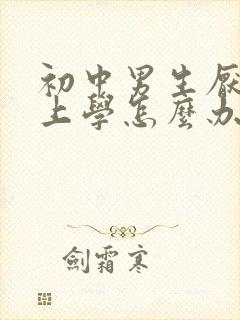 初中男生厭
上學怎麼办
劍霜寒